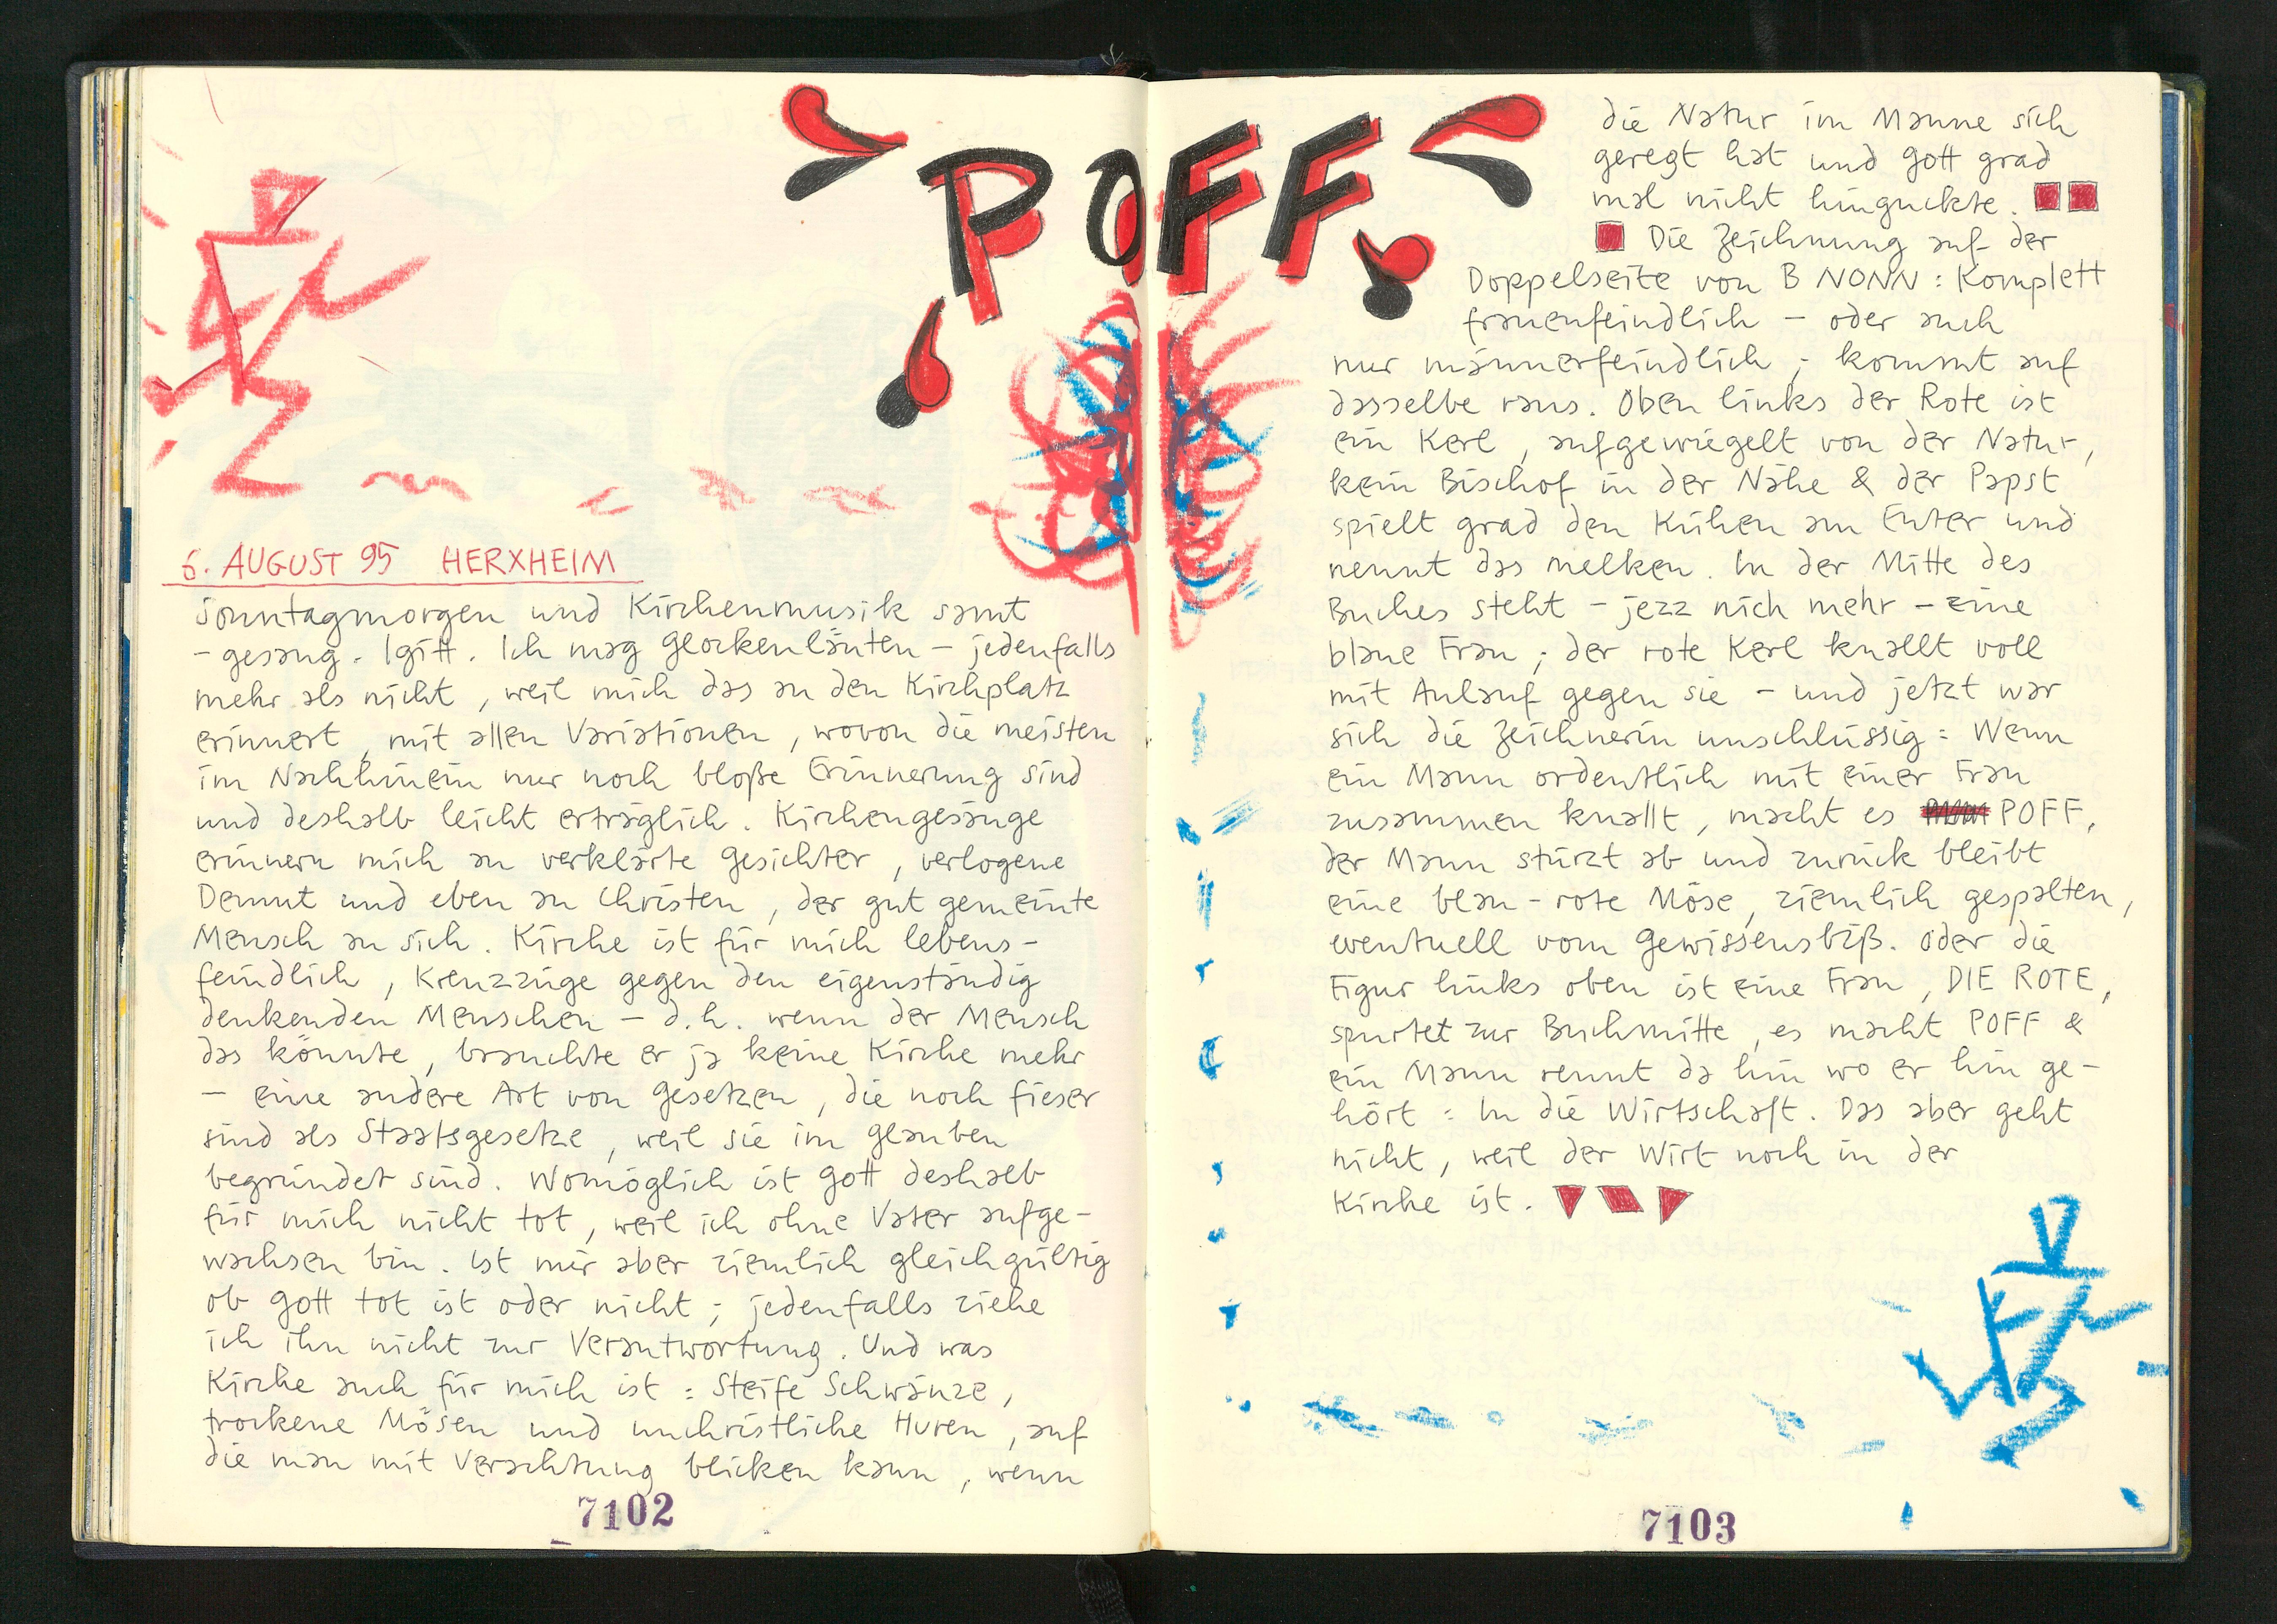 POFF
6. AUGUST 95 HERXHEIM
Sonntagmorgen und Kirchenmusik samt
- gesang. Igitt. Ich mag Glockenläuten – jedenfalls
mehr als nicht, weil mich das an den Kirchplatz
erinnert, mit allen Variationen, wovon die meisten
im Nachhinein nur noch bloße Erinnerung sind
und deshalb leicht erträglich. Kirchengesänge
erinnern mich an verklärte Gesichter, verlogene
Demut und eben an Christen, der gut gemeinte
Mensch an sich. Kirche ist für mich lebens-
feindlich, Kreuzzüge gegen den eigenständig
denkenden Menschen – d.h. wenn der Mensch
das könnte, brauchte er ja keine Kirche mehr
– eine andere Art von Gesetzen, die noch fieser
sind als Staatsgesetze, weil sie im Glauben
begründet sind. Womöglich ist Gott deshalb
für mich nicht tot, weil ich ohne Vater aufge-
wachsen bin. Ist mir aber ziemlich gleichgültig
ob Gott tot ist oder nicht; jedenfalls ziehe
ich ihn nicht zur Verantwortung. Und was
Kirche auch für mich ist: Steife Schwänze,
trockene Mösen und unchristliche Huren, auf
die man mit Verachtung blicken kann, wenn
7102
die Natur im Manne sich
geregt hat und Gott grad
mal nicht hinguckte.
Die Zeichnung auf der
Doppelseite von B NONN: Komplett
frauenfeindlich – oder auch
nur männerfeindlich; kommt auf
dasselbe raus. Oben links der Rote ist
ein Kerl, aufgewiegelt von der Natur,
kein Bischof in der Nähe & der Papst
spielt grad den Kühen am Euter und
nennt das melken. In der Mitte des
Buches steht – jezz nich mehr – eine
blaue Frau; der rote Kerl knallt voll
mit Anlauf gegen sie – und jetzt war
sich die Zeichnerin unschlüssig: Wenn
ein Mann ordentlich mit einer Frau
zusammen knallt, macht es POFF,
der Mann stürzt ab und zurück bleibt
eine blau-rote Möse, ziemlich gespalten,
eventuell vom Gewissensbiß. Oder die
Figur links oben ist eine Frau, DIE ROTE,
spurtet zur Buchmitte, es macht POFF &
ein Mann rennt da hin wo er hin ge-
hört: In die Wirtschaft. Das aber geht
nicht, weil der Wirt noch in der
Kirche ist.
7103